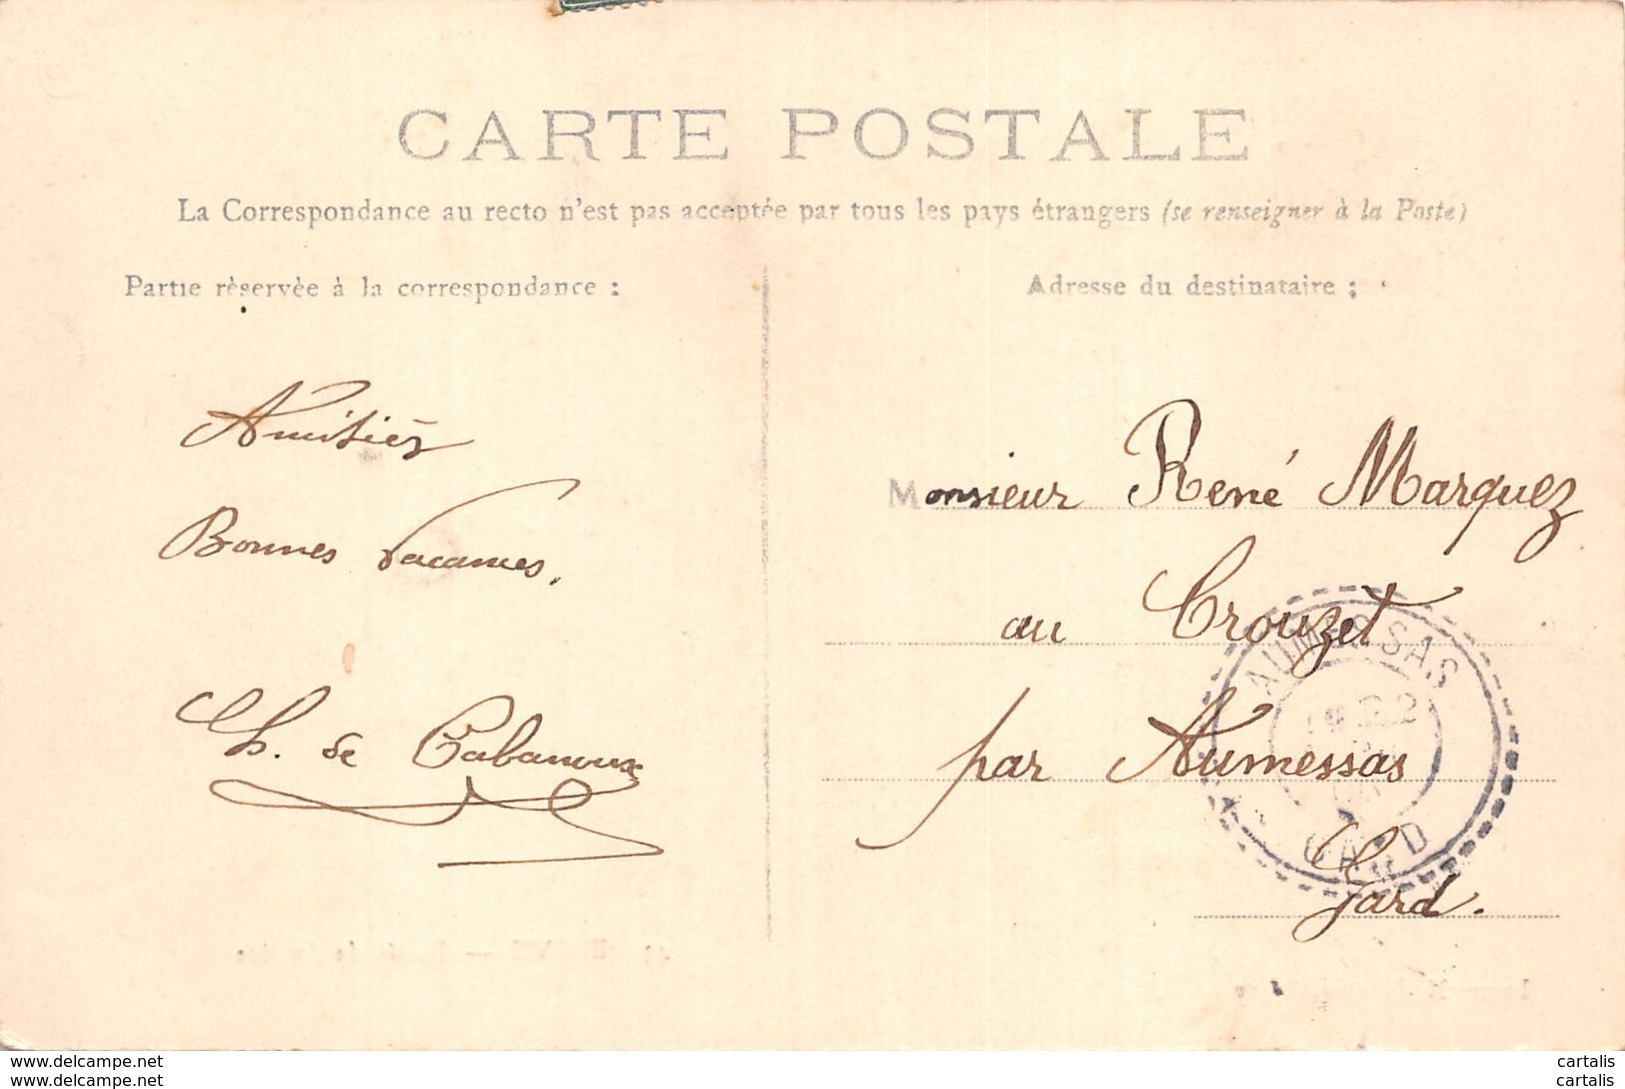 CARTE POSTALE
La Correspondance au recto n'est pas acceptée par tous les pays étrangers (se renseigner à la Poste)
Partie réservée à la correspondance :
Amitiés
Bonnes vacances.
h. de Cabanoux
Adresse du destinataire :
Monsieur René Marquez
au Crouzet
par Aumessas
Gard.
AUMESSAS
GARD
www.delcampe.net
www.delcampe.net
cartalis
cartalis